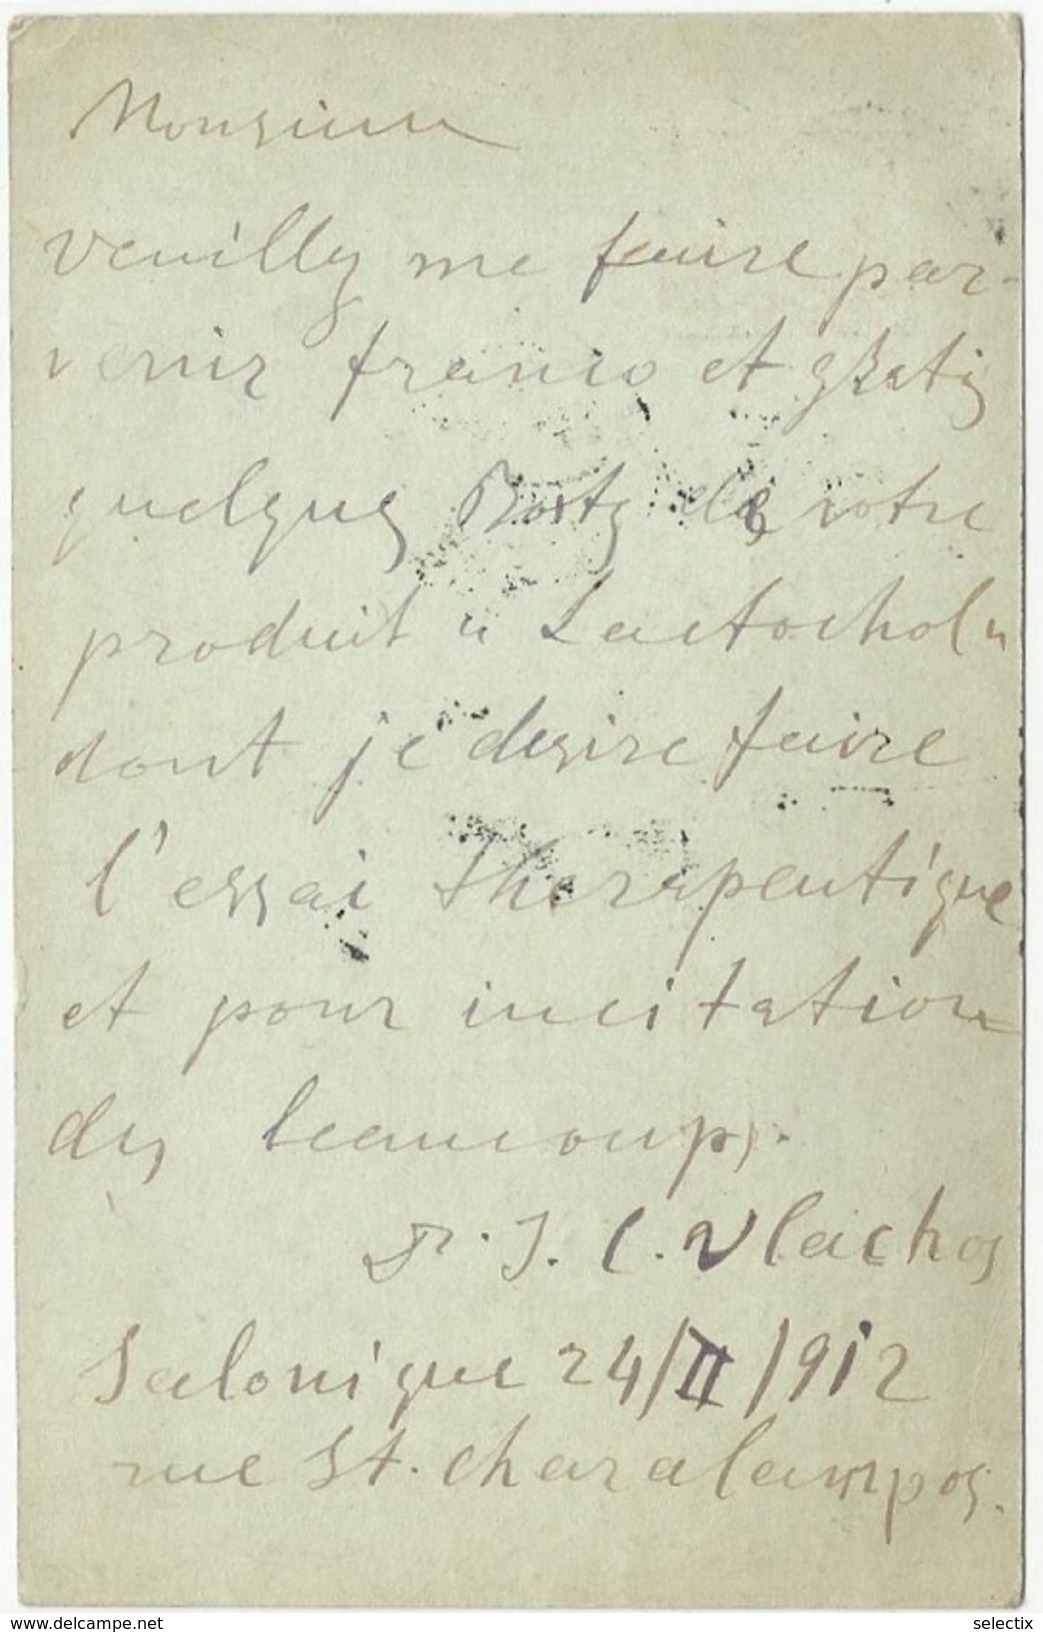 Monsieur
veuillez me faire par-
venir franco et gratis
quelques Boits de votre
produit " Lactochol "
dont je desire faire
l'essai therapeutique
et pour incitation
des beaucoup.
Dr. J. C. Vlachos
Salonique 24/II/912
rue St. Charalampos.
www.delcampe.net
selectix